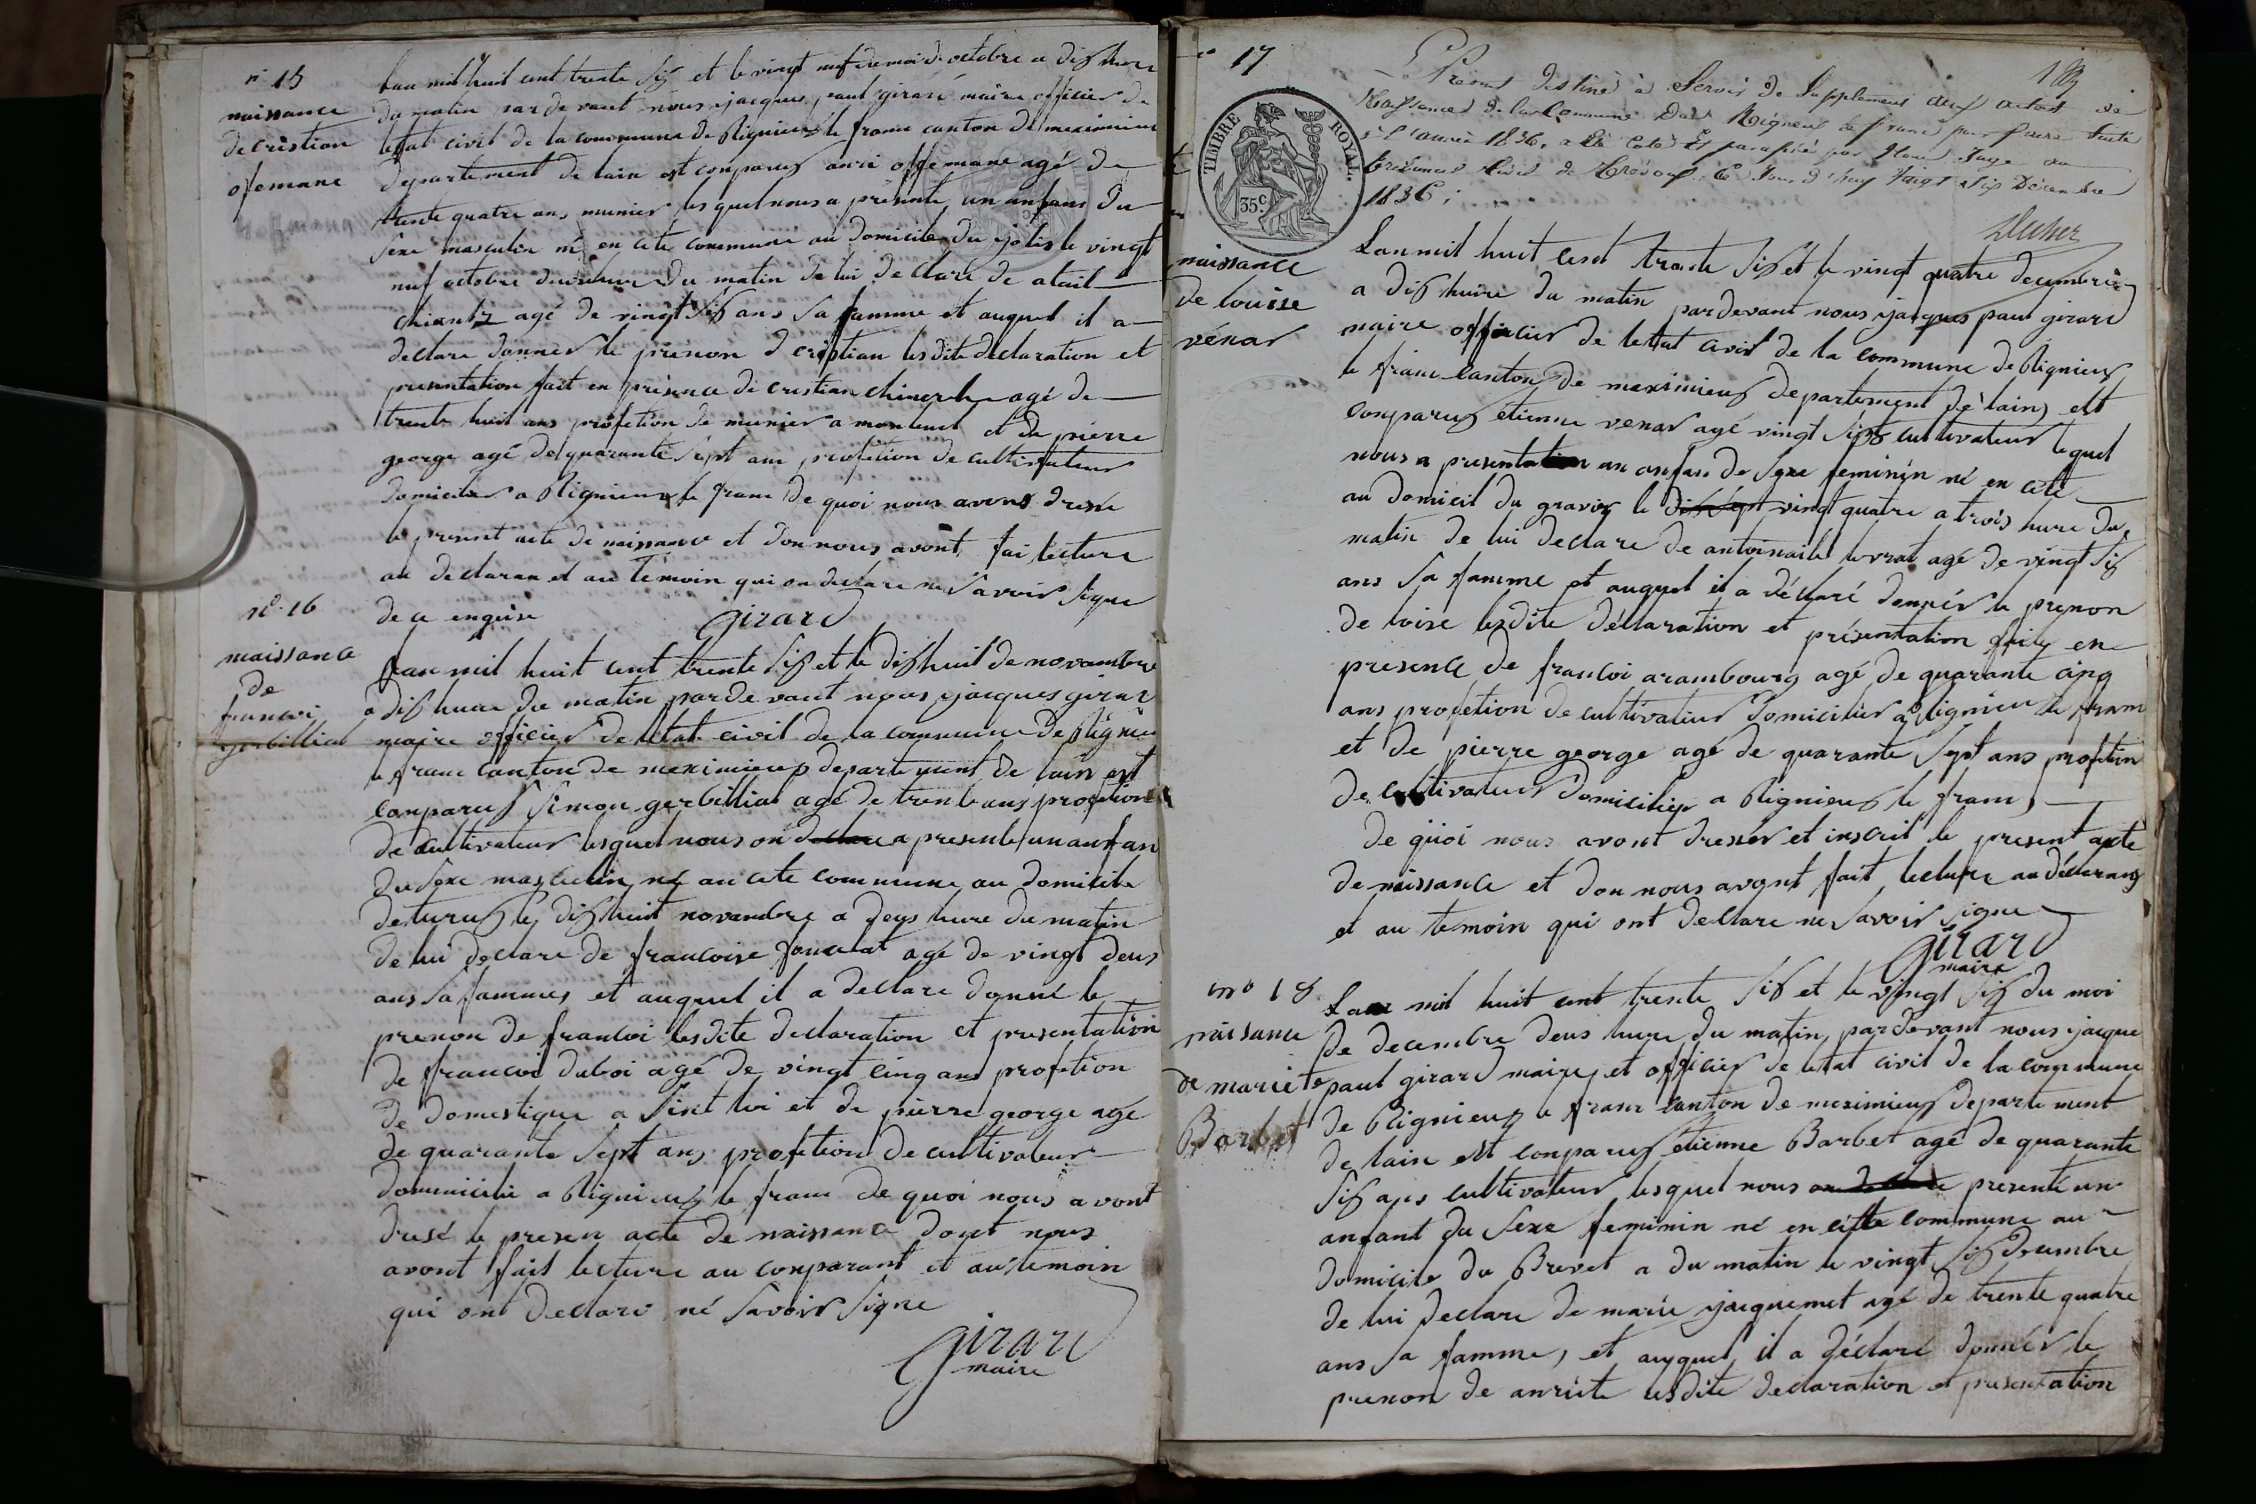 n° 15
naissance
de cristian
ofemane
lan mil huit cent trente sis et le vingt neuf du moi d octobre a dis hure
du matin par de vant nous jacques paul girard maire officier de
letat civil de la commune de Rignieux le franc canton de meximieux
departement de lain est conparus anri offemane agé de
trente quatre ans munier les quel nous a présenté un anfans du
sexe masculin né en cete commune au domicile du jolis le vingt
neuf octobre du matin de lui declare de
agé de vingt sis ans sa famme et auquel il a
declare donner le prénon d cristian lesdite declaration et
presentation fait en présence de cristian agé de
trente huit ans profetion de munier a montuel et de pierre
george agé de quarante sept ans profetion de cultivateur
domicilier a Rignieux le franc de quoi nous avons dressé
le present acte de naissance et don nous avont fai lecture
au declaran et au temoin qui on declare ne savoir signe
de ce enquise
girard
n° 16
naissance
de
francoi
gerbilliat
lan mil huit cent trente sis et le dis huit de novambre
a dis hure du matin par de vant nous jacques girar
maire officier de letat civil de la commune de Rignieu
le franc canton de meximieux departement de lain est
conparus simon gerbilliat agé de trente ans profetion
de cultivateur lesquel nous on declare a presente un anfan
du sexe masculin né au cete commune au domicile
de turus le dis huit novambre a deys hure du matin
de lui declare de francoise agé de vingt deus
ans sa fammes et auquel il a declare donné le
prenon de francoi lesdite declaration et presentation
de francoi duboi agé de vingt cinq ans profetion
de domestique a et de pierre george agé
de quarante sept ans profetion de cultivateur
domicilié a Rignieux le franc de quoi nous avont
dresé le presen acte de naissance dont nous
avont fait lecture au conparant et au temoin
qui ont declare né savoir signe
girard
maire
17
Présent destiné à servir de supplement aux actes de
Naissances de la Commune de Rigneux le franc pour faire suite
à l'année 1836, a été coté et paraphé par Nous Juge au
tribunal Civil de Trévoux, Ce jour d'huy vingt six Décembre
1836.
TIMBRE ROYAL.
35 c
naissance
de louise
vénar
Lan mil huit cent trente sis et le vingt quatre decembre
a dis hure du matin pardevant nous jacques paul girard
maire officier de letat civil de la commune de Rignieux
le franc canton de meximieux departement de lain est
conparus etienne venar agé vingt sept cultivateur lequel
nous a presentation un anfan de sexe feminin né en cete
au domicil du gravier le dis sept vingt quatre a trois hure du
matin de lui declare de antoinaite agé de vingt sis
ans sa famme et auquel il a déclaré donnér le prenon
de loise lesdite déclaration et présentation fait en
présence de francoi arambourg agé de quarante cinq
ans profetion de cultivateur domicilier a Rignieu le franc
et de pierre george agé de quarante sept ans profetion
de cultivateur domicilier a Rignieux le franc
de quoi nous avont dresser et inscrit le present acte
de naissance et don nous avont fait lecture au déclarans
et au temoin qui ont declare ne savoir signe
girard
maire
n° 18
naissance
de mariete
Barbet
Lan mil huit cent trente sis et le vingt sis du moi
de decembre deus hure du matin pardevant nous jacque
paul girard maire et officier de letat civil de la commune
de Rignieux le franc canton de meximieux departement
de lain est conparus etienne Barbet agé de quarante
sis ans cultivateur lesquel nous on declare presenté un
anfant du sexe feminin né en cette commune au
domicile du Brevet a du matin le vingt sis decembre
de lui declare de marie jacquemet agé de trente quatre
ans sa famme, et auquel il a déclaré donnér le
prenon de anriete lesdite declaration et presentation